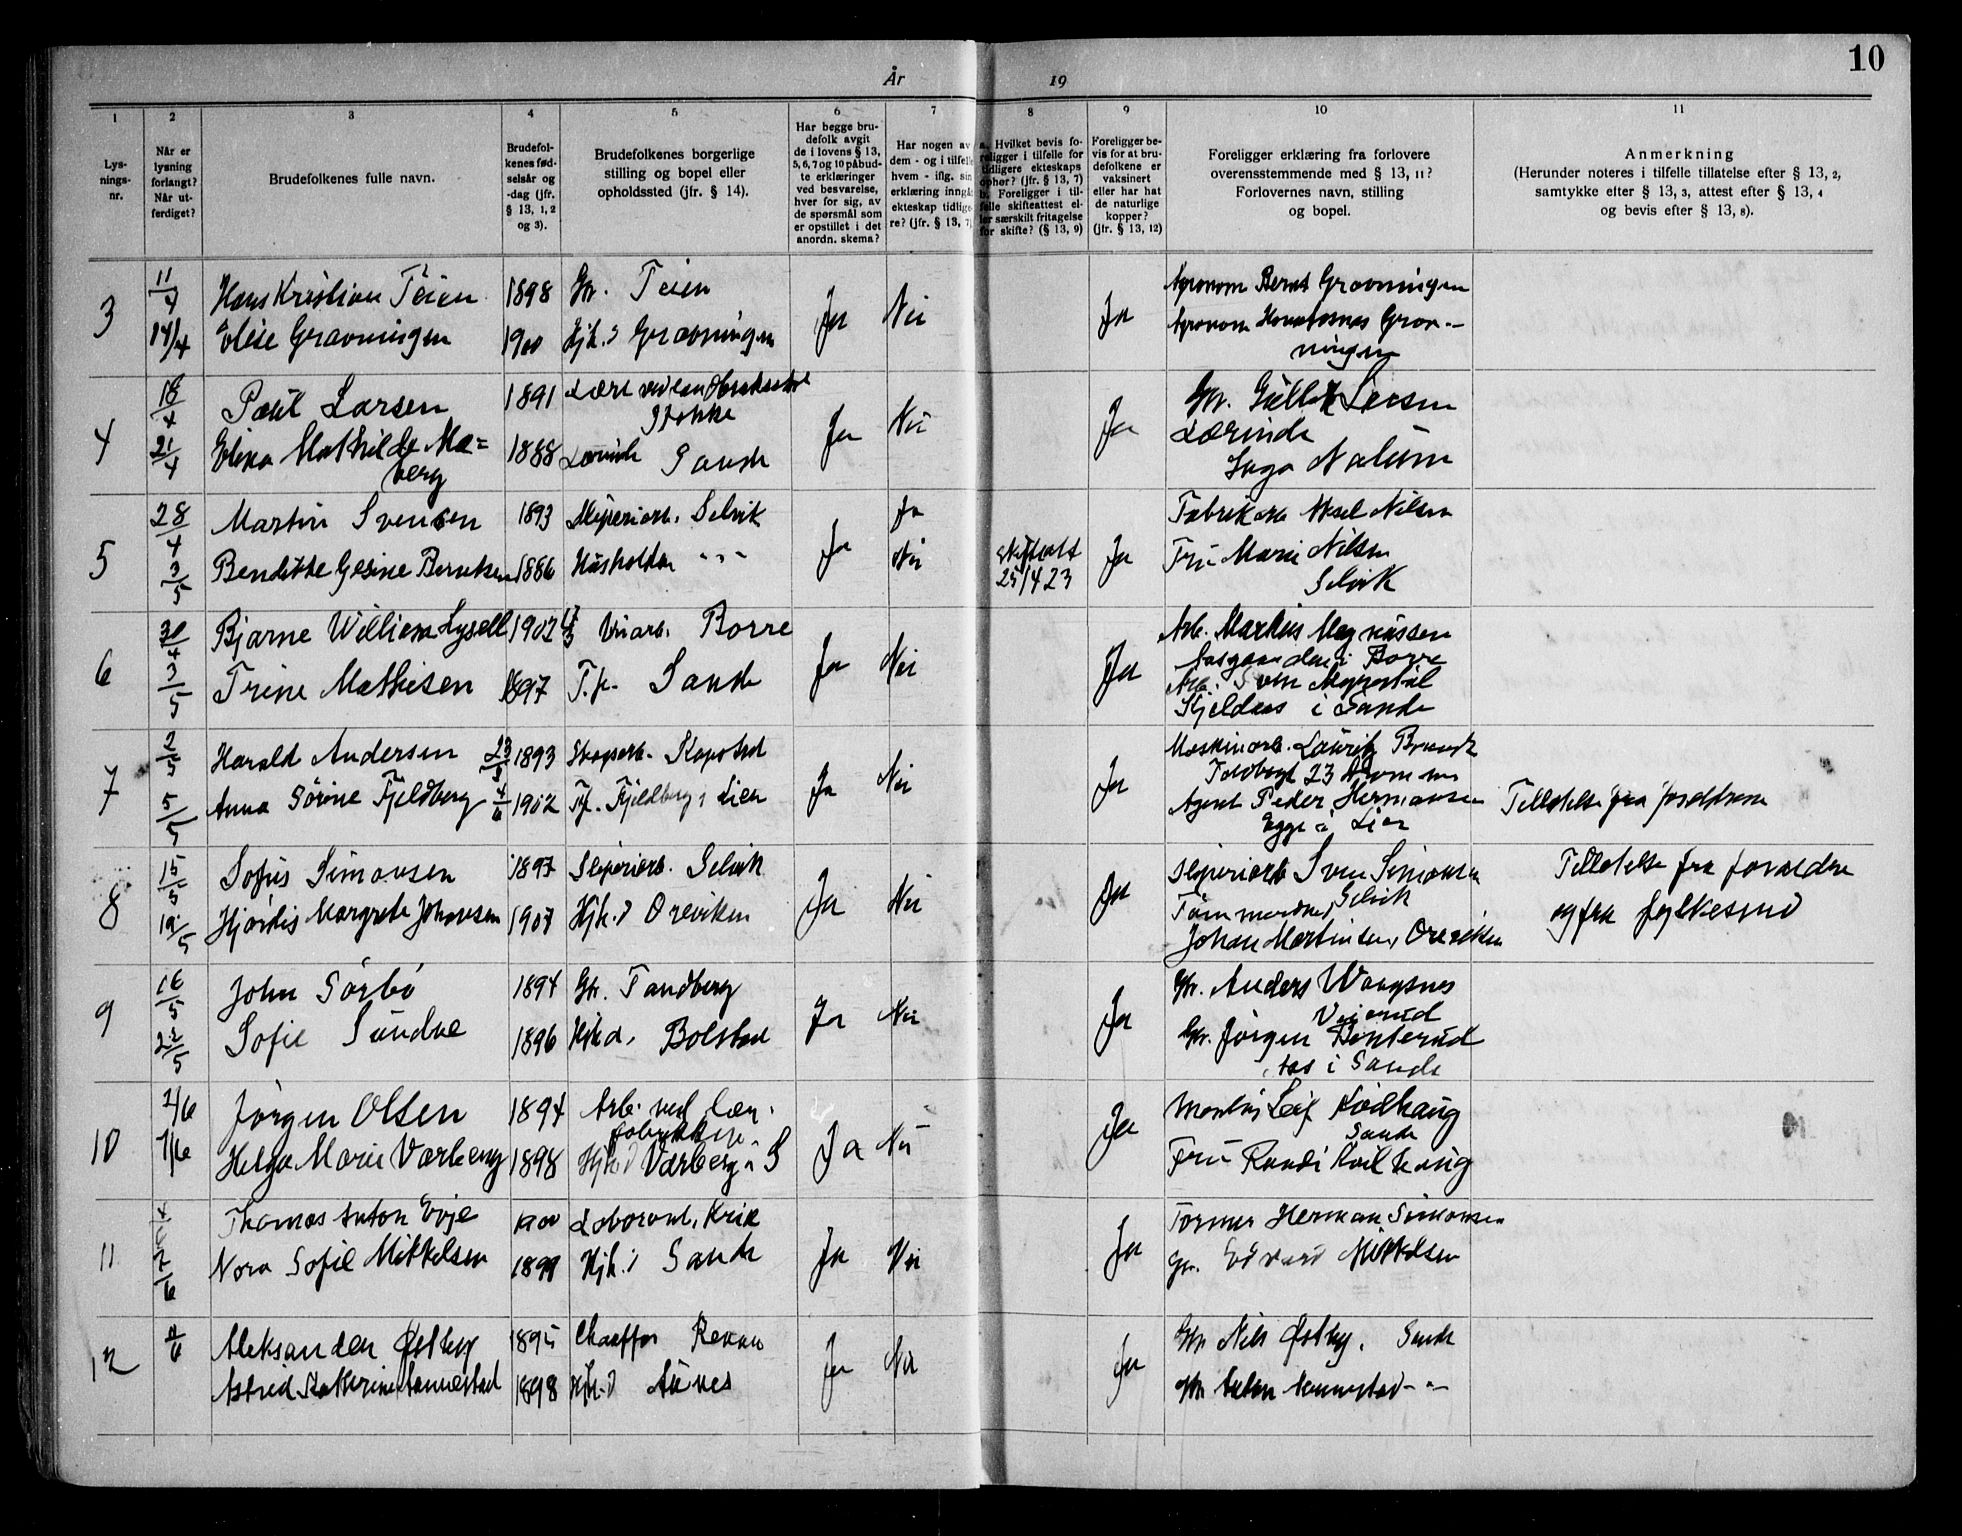 10
År 19
1 2 3 4 5 6 7 8 9 10 11
Lysningsnr.
Når er lysning forlangt? Når utferdiget?
Brudefolkenes fulle navn.
Brudefolkenes fødselsår og -dag (jfr. § 13, 1, 2 og 3).
Brudefolkenes borgerlige stilling og bopel eller opholdssted (jfr. § 14).
Har begge brudefolk avgit de i lovens § 13, 5, 6, 7 og 10 påbudte erklæringer ved besvarelse, hver for sig, av de spørsmål som er opstillet i det anordn. skema?
Har nogen av dem - og i tilfelle hvem - iflg. sin erklæring inngått ekteskap tidligere? (jfr. § 13, 7)
a. Hvilket bevis foreligger i tilfelle for tidligere ekteskaps ophør? (jfr. § 13, 7) b. Foreligger i tilfelle skifteattest eller særskilt fritagelse for skifte? (§ 13, 9)
Foreligger bevis for at brudefolkene er vaksinert eller har hat de naturlige kopper? (jfr. § 13, 12)
Foreligger erklæring fra forlovere overensstemmende med § 13, 11? Forlovernes navn, stilling og bopel.
Anmerkning (Herunder noteres i tilfelle tillatelse efter § 13, 2, samtykke efter § 13, 3, attest efter § 13, 4 og bevis efter § 13, 8).
3 11/4 Hans Kristian Teien 1898 Gbr. Teien Ja Nei Ja Agronom Bernt Gravningen
14/4 Elise Gravningen 1900 Hjh.d Gravningen Agronom Grav-
ningen
4 18/4 Paul Larsen 1891
Stokke Ja Nei Ja Gbr. Larsen
21/4 Elina Mathilde Mæ= 1888 Lærinde Sande Lærinde
berg Inga Nalum
5 28/4 Martin Svensen 1893 Sliperiarb. Selvik Ja Ja Ja Fabrikarb Aksel Nilsen
3/5 Bendikke Gesine Berntsen 1886 Husholder " " Nei 25/4 23 Fru Marie Nilsen
Selvik
6 30/4 Bjarne William Lysell 1902 Borre Ja Nei Ja Arb. Markus Magnussen
i Borre
3/5 Trine Mathisen 1897 T.p. Sande Arb. Sven
Kjeldaas i Sande
7 2/5 Harald Andersen 1893 Ja Nei Ja Maskinarb. Lauritz
23 Drammen
5/5 Anna Sörine Fjeldberg 4/6 1902 Fjeldberg i Lier Agent Peder Hermansen Tillatelse fra foreldrene
Egge i Lier
8 15/5 Sofus Simonsen 1897 Sliperiarb. Selvik Ja Nei Ja Sliperiarb Sven Simonsen Tillatelse fra foreldre
Selvik
19/5 Hjördis Margrete Johansen 1907 Hjh.d Oreviken og fra fylkesmd
Johan Martinsen, Oreviken
9 16/5 John Sörbö 1894 Gbr. Tandberg Ja Nei Ja Gbr. Anders
22/5 Sofie Sundne 1896 Hjhd. Bolstad Gbr. Jörgen
Aas i Sande
10 2/6 Jörgen Olsen 1894 Arb. ved lær-
fabrikken Ja Nei Ja Leif Kvilhaug
Sande
7/6 Helga Marie Varberg 1898 Hjhd Varberg i S Fru Randi Kvilhaug
11 Thomas Anton Evje 1900 Laborant, Kria Ja Nei Ja Former Herman Simonsen
7/6 Nora Sofie Mikkelsen 1899 Hjh.d Sande Gr. Edvard Mikkelsen
12 Aleksander Østby 1895 Chauffør Ja Nei Ja Gbr Nils Østby. Sande
Astrid Kathrine Aannestad 1898 Hjh.d Aunes Gbr Anton Aannestad - " -